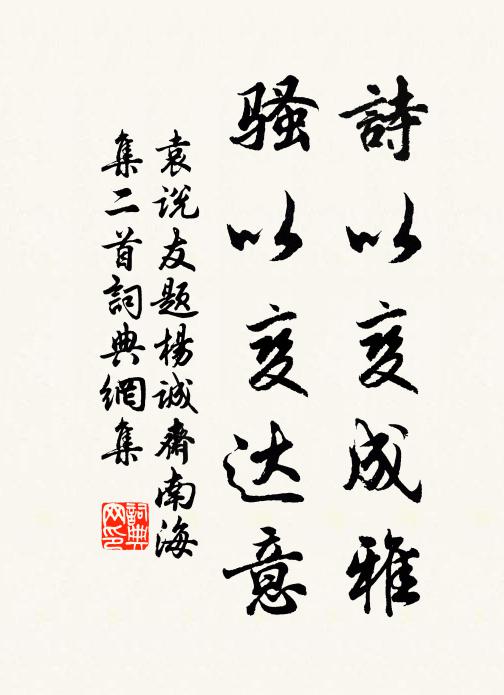 詩以变成雅
骚以变达意
袁说友题楊诚齋南海
集二首詞典網集
詞典
网印